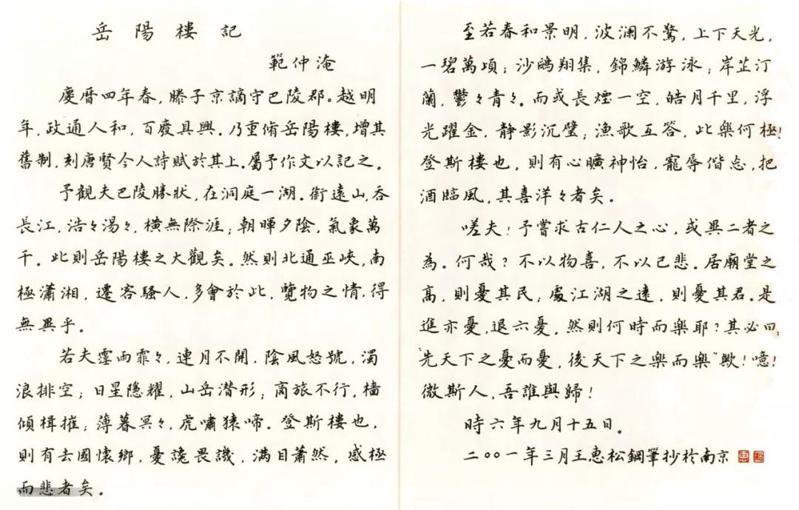 岳陽樓記
範仲淹
慶曆四年春，滕子京謫守巴陵郡。越明
年，政通人和，百廢具興。乃重脩岳陽樓，增其
舊制，刻唐賢今人詩賦於其上。屬予作文以記之。
予觀夫巴陵勝狀，在洞庭一湖。銜遠山，吞
長江，浩々湯々，橫無際涯；朝暉夕陰，氣象萬
千。此則岳陽樓之大觀矣。然則北通巫峽，南
極瀟湘，遷客騷人，多會於此，覽物之情，得
無異乎。
若夫霪雨霏々，連月不開，陰風怒號，濁
浪排空；日星隱耀，山岳潛形；商旅不行，檣
傾楫摧；薄暮冥々，虎嘯猿啼。登斯樓也，
則有去國懷鄉，憂讒畏譏，滿目蕭然，感極
而悲者矣。
至若春和景明，波瀾不驚，上下天光，
一碧萬頃；沙鷗翔集，錦鱗游泳；岸芷汀
蘭，鬱々青々。而或長煙一空，皓月千里，浮
光躍金，静影沉璧；漁歌互答，此樂何極！
登斯樓也，則有心曠神怡，寵辱偕忘，把
酒臨風，其喜洋々者矣。
嗟夫！予嘗求古仁人之心，或異二者之
為。何哉？不以物喜，不以己悲。居廟堂之
高，則憂其民；處江湖之遠，則憂其君。是
進亦憂，退亦憂，然則何時而樂耶？其必曰
“先天下之憂而憂，後天下之樂而樂”歟！噫！
微斯人，吾誰與歸！
時六年九月十五日。
二〇〇一年三月王惠松鋼筆抄於南京